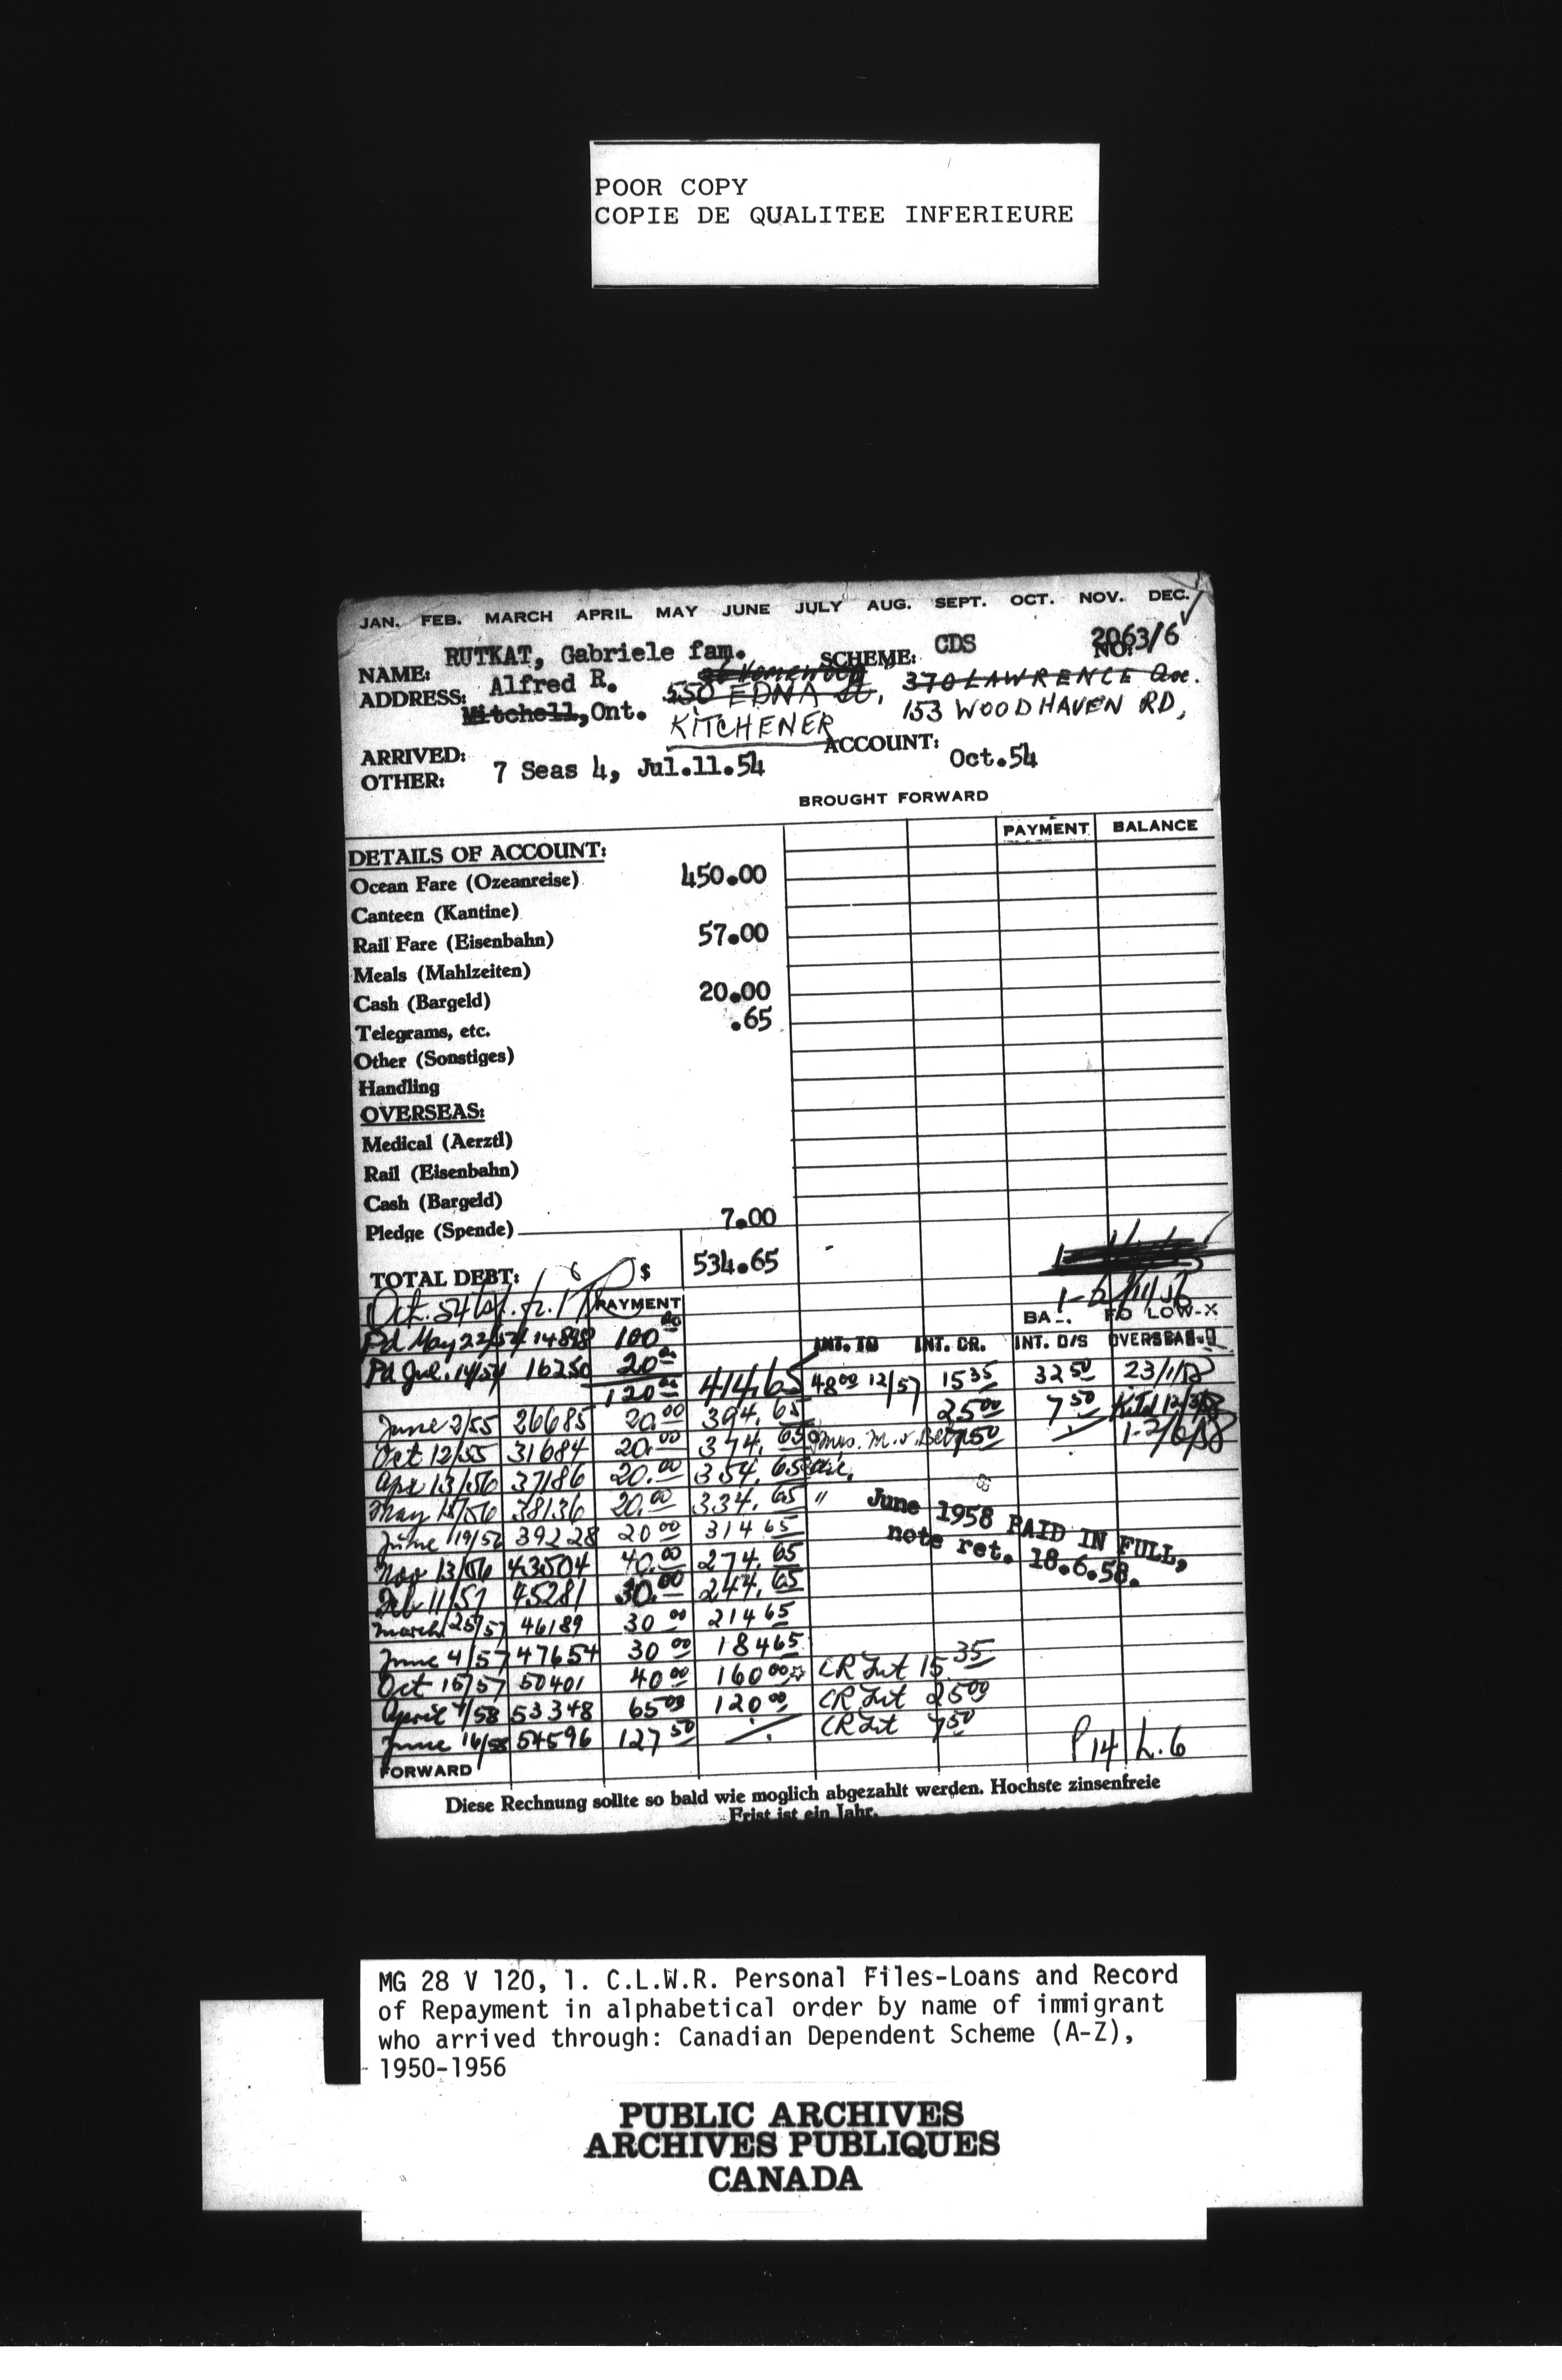 POOR COPY
COPIE DE QUALITEE INFERIEURE
JAN. FEB. MARCH APRIL MAY JUNE JULY AUG. SEPT. OCT. NOV. DEC.
NAME: RUTKAT, Gabriele fam. SCHEME: CDS NO. 2063/6
ADDRESS: Alfred R. 550 EDNA St, 370 LAWRENCE Ave.
Mitchell, Ont. KITCHENER 153 WOODHAVEN RD,
ARRIVED: ACCOUNT: Oct.54
OTHER: 7 Seas 4, Jul.11.54
BROUGHT FORWARD
PAYMENT BALANCE
DETAILS OF ACCOUNT:
Ocean Fare (Ozeanreise) 450.00
Canteen (Kantine)
Rail Fare (Eisenbahn) 57.00
Meals (Mahlzeiten)
Cash (Bargeld) 20.00
Telegrams, etc. .65
Other (Sonstiges)
Handling
OVERSEAS:
Medical (Aerztl)
Rail (Eisenbahn)
Cash (Bargeld)
Pledge (Spende) 7.00
TOTAL DEBT: $ 534.65
Oct. 54 PAYMENT
BA-. FD LOW-X
Pd May 22/54 14898 100.00 INT. TO INT. CR. INT. O/S OVERSEAS
Pd Jul. 14/54 16250 20.00
120.00 414.65 48.00 12/57 15.35 32.50 23/1/58
June 2/55 26685 20.00 394.65 25.00 7.50
Oct 12/55 31684 20.00 374.65 Mrs. M. v. 7.50
Apr 13/56 37186 20.00 354.65
May 15/56 38136 20.00 334.65 "
June 19/56 39228 20.00 314.65
June 1958 PAID IN FULL,
note ret. 18.6.58.
Nov 13/56 43504 40.00 274.65
Feb 11/57 45281 30.00 244.65
March 25/57 46189 30.00 214.65
June 4/57 47654 30.00 184.65
Oct 15/57 50401 40.00 160.00 CR Int 15.35
April 7/58 53348 65.00 120.00 CR Int 25.00
June 16/58 54596 127.50 CR Int 7.50
P14 L.6
FORWARD
Diese Rechnung sollte so bald wie moglich abgezahlt werden. Hochste zinsenfreie
Frist ist ein Jahr.
MG 28 V 120, 1. C.L.W.R. Personal Files-Loans and Record
of Repayment in alphabetical order by name of immigrant
who arrived through: Canadian Dependent Scheme (A-Z),
1950-1956
PUBLIC ARCHIVES
ARCHIVES PUBLIQUES
CANADA